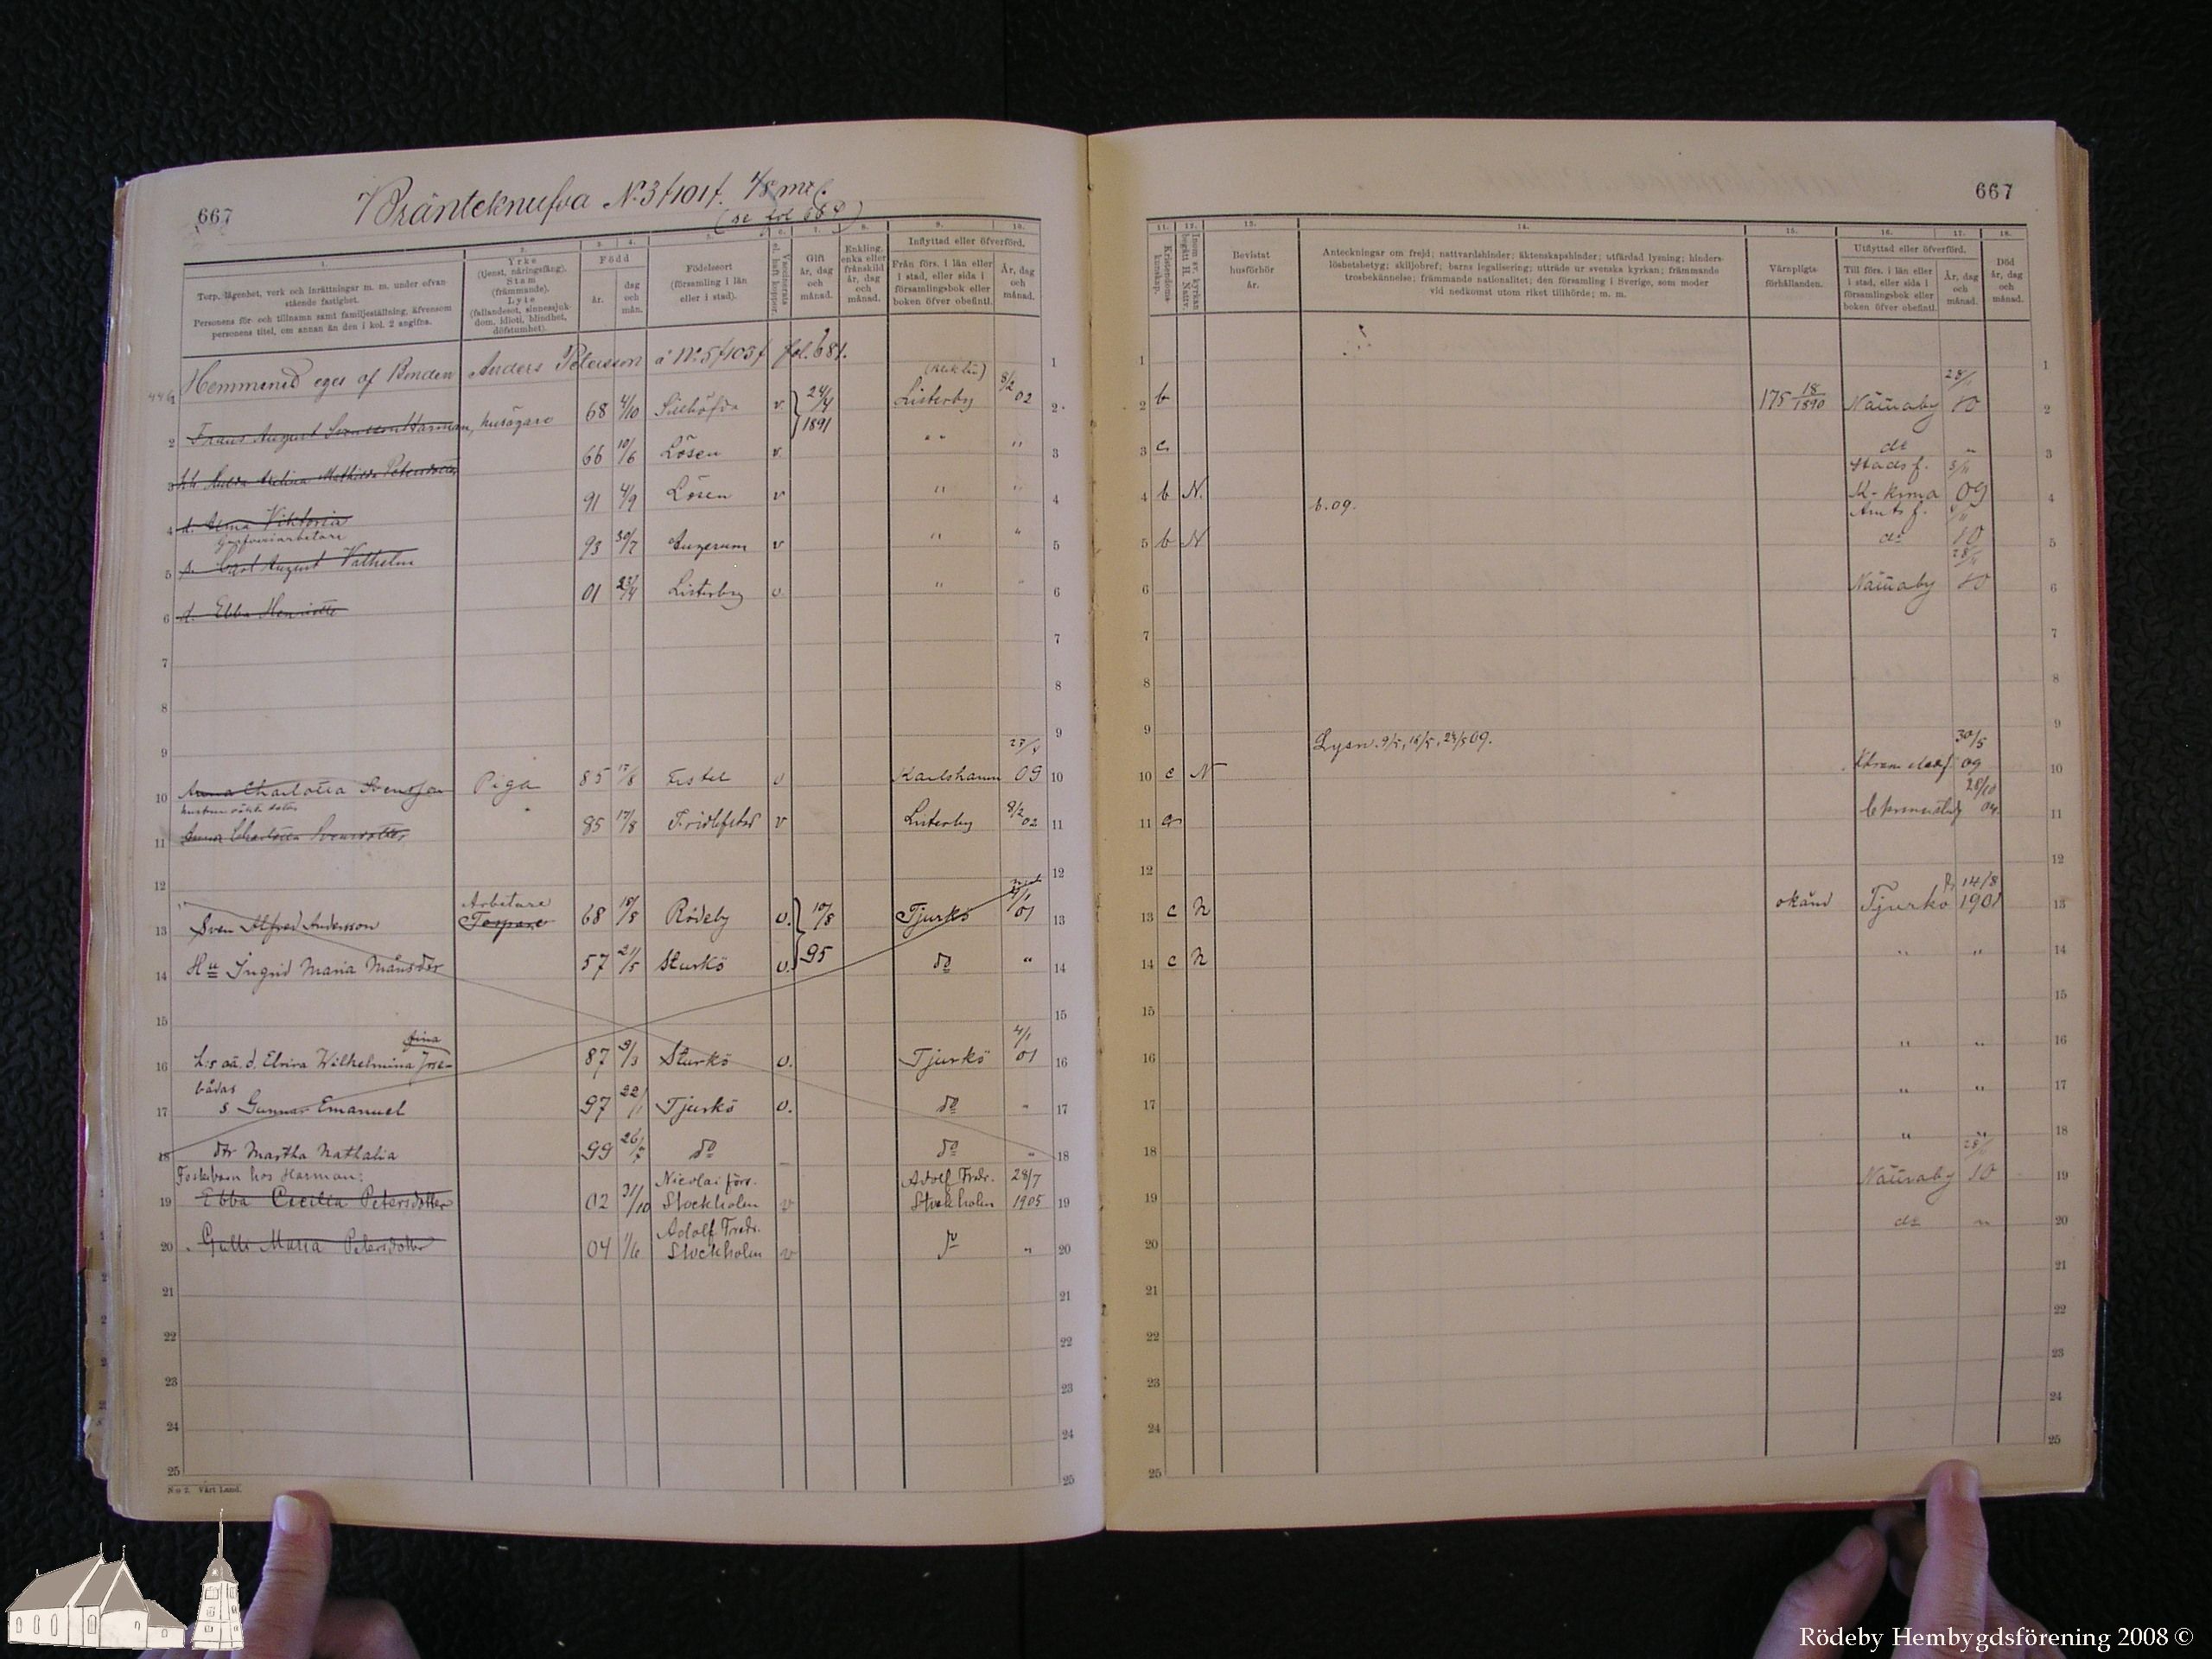 667
Bränteknufva No 3 f 101 f. 1/8 mtl.
(se fol 684)
1.
Torp, lägenhet, verk och inrättningar m. m. under ofvan-
stående fastighet.
Personens för- och tillnamn samt familjeställning, äfvensom
personens titel, om annan än den i kol. 2 angifna.
2.
Yrke
(tjenst, näringsfång).
Stam
(främmande).
Lyte
(fallandesot, sinnessjuk-
dom, idioti, blindhet,
döfstumhet).
3. 4.
Född
år.
dag
och
mån.
5.
Födelseort
(församling i län
eller i stad).
6.
Vaccinerats
el. haft koppor.
7.
Gift
år, dag
och
månad.
8.
Enkling,
enka eller
frånskild
år, dag
och
månad.
9. 10.
Inflyttad eller öfverförd.
Från förs. i län eller
i stad, eller sida i
församlingsbok eller
boken öfver obefintl.
År, dag
och
månad.
Hemmanet eges af Bonden Anders Petersson å No 5 f 105 f fol. 681. 1
2 Frans August Svensson Harman, husägare 68 4/10 Sillhöfda v. 24/4 1891 Listerby 8/2 02 2
3 66 10/6 Lösen v. " " " 3
4 d. Alma Viktoria 91 4/9 Lösen v " " 4
5 s. Carl August Valhelm 93 30/7 Augerum v " " 5
6 d. Ebba Henriette 01 23/4 Listerby v " " 6
7 7
8 8
9 9
10 Anna Charlotta Svensson Piga 85 17/8 v Karlshamn 09 10
11 Anna Charlotta Svensdotter 85 17/8 Fridlefstad v Listerby 8/2 02 11
12 12
13 Sven Alfred Andersson Arbetare Torpare 68 18/8 Rödeby v. 10/8 95 Tjurkö 01 13
14 Hu Ingrid Maria Månsdtr 57 21/5 Sturkö v. do " 14
15 15
fina
16 h:s oä. d. Elvira Wilhelmina Jose- 87 9/3 Sturkö v. Tjurkö 4/1 01 16
bådas
17 s Gunnar Emanuel 97 22/1 Tjurkö v. do " 17
18 dtr Martha Nathalia 99 26/7 do do " 18
Fosterbarn hos Harman:
19 Ebba Cecilia Petersdotter 02 31/10 Nicolai förs. Stockholm v Adolf Fredr. Stockholm 28/7 1905 19
20 Gulli Maria Petersdotter 04 1/6 Adolf Fredr. Stockholm v " 20
21 21
22 22
23 23
24 24
25 25
No 2. Vårt Land.
667
11.
Kristendoms-
kunskap.
12.
Inom sv. kyrkan
begått H. Nattv.
13.
Bevistat
husförhör
år.
14.
Anteckningar om frejd; nattvardshinder; äktenskapshinder; utfärdad lysning; hinders-
löshetsbetyg; skiljobref; barns legalisering; utträde ur svenska kyrkan; främmande
trosbekännelse; främmande nationalitet; den församling i Sverige, som moder
vid nedkomst utom riket tillhörde; m. m.
15.
Värnpligts-
förhållanden.
16. 17.
Utflyttad eller öfverförd.
Till förs. i län eller
i stad, eller sida i
församlingsbok eller
boken öfver obefintl.
År, dag
och
månad.
18.
Död
år, dag
och
månad.
1 1
2 b 175 18/1890 Nättraby 28/11 10 2
3 c do " 3
4 b N. b. 09. Stadsf. K-krona 09 4
5 b N Amtsf. do 10 5
6 Nättraby 28/11 10 6
7 7
8 8
9 9
10 c N Lysn. 9/5, 16/5, 23/5 09. 30/5 09 10
11 28/10 04 11
12 12
13 c N okänd Tjurkö 14/8 1901 13
14 c N " " 14
15 15
16 " " 16
17 " " 17
18 " " 18
19 Nättraby 28/11 10 19
20 do " 20
21 21
22 22
23 23
24 24
25 25
Rödeby Hembygdsförening 2008 ©